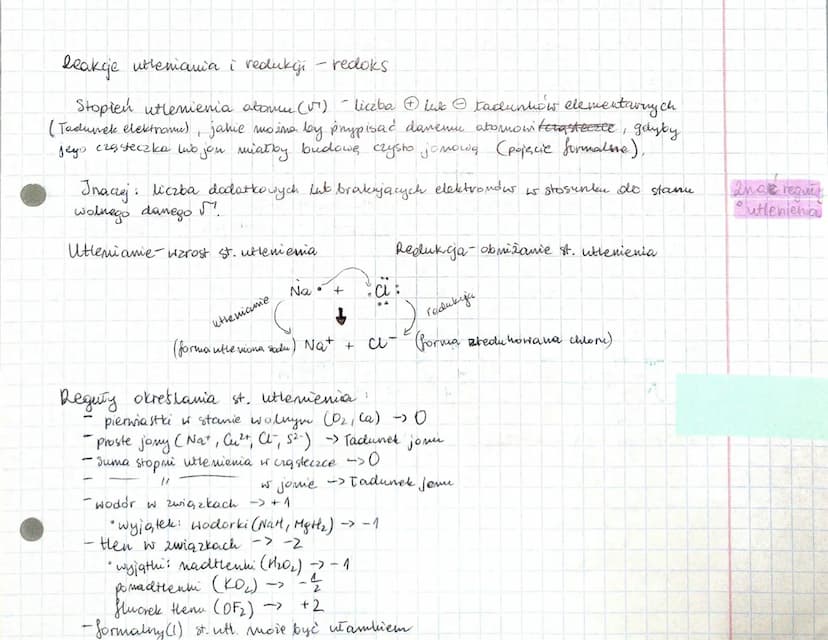 Reakcje utleniania i redukcji – redoks
Stopień utlenienia atomu (√¹) – liczba ⊕ lub ⊖ ładunków elementarnych
(ładunek elektronu), jakie można by przypisać danemu atomowi/cząsteczce, gdyby
jego cząsteczka lub jon miałby budowę czysto jonową (pojęcie formalne).
Inaczej: liczba dodatkowych lub brakujących elektronów w stosunku do stanu
wolnego danego √¹.
znać reguły
utlenienia
Utlenianie – wzrost st. utlenienia Redukcja – obniżanie st. utlenienia
Na• + :Cl:
utlenianie redukcja
(forma utleniona sodu) Na⁺ + Cl⁻ (forma zredukowana chloru)
Reguły określania st. utlenienia:
– pierwiastki w stanie wolnym (O₂, Ca) → 0
– proste jony (Na⁺, Cu²⁺, Cl⁻, S²⁻) → ładunek jonu
– suma stopni utlenienia w cząsteczce → 0
– — " — w jonie → ładunek jonu
– wodór w związkach → +1
• wyjątek: wodorki (NaH, MgH₂) → -1
– tlen w związkach → -2
• wyjątki: nadtlenki (H₂O₂) → -1
ponadtlenki (KO₂) → -½
fluorek tlenu (OF₂) → +2
– formalny(!) st. utl. może być ułamkiem